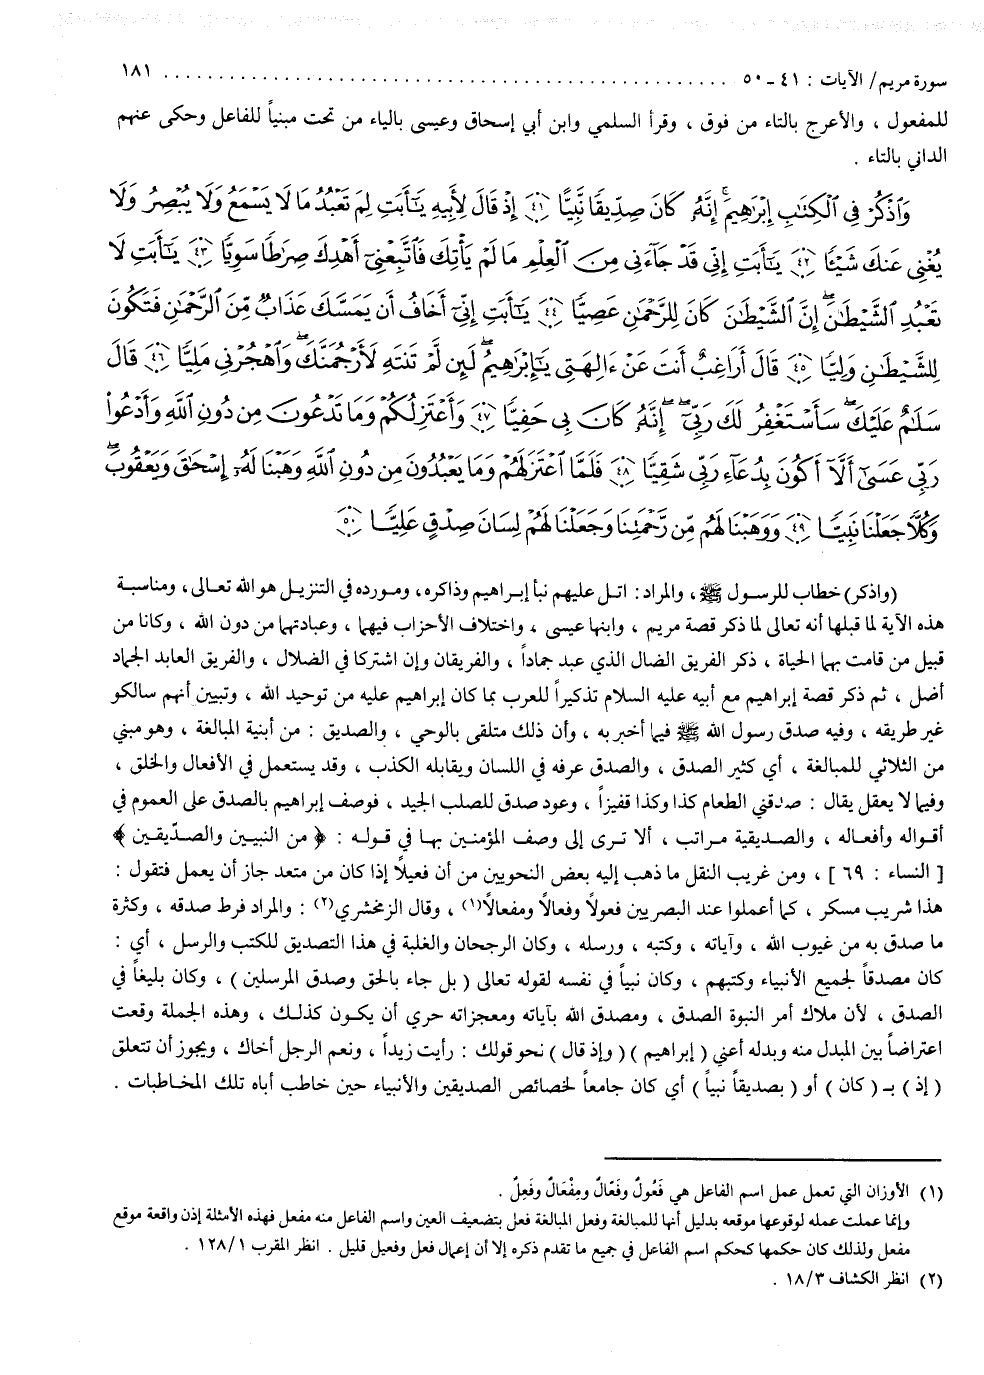 سورة مريم/ الآيات : ٤١ - ٥٠ ............................................................ ١٨١
للمفعول ، والأعرج بالتاء من فوق ، وقرأ السلمي وابن أبي إسحاق وعيسى بالياء من تحت مبنياً للفاعل وحكى عنهم
الداني بالتاء .
وَٱذْكُرْ فِى ٱلْكِتَٰبِ إِبْرَٰهِيمَ ۚ إِنَّهُۥ كَانَ صِدِّيقًا نَّبِيًّا ﴿٤١﴾ إِذْ قَالَ لِأَبِيهِ يَٰٓأَبَتِ لِمَ تَعْبُدُ مَا لَا يَسْمَعُ وَلَا يُبْصِرُ وَلَا
يُغْنِى عَنكَ شَيْـًٔا ﴿٤٢﴾ يَٰٓأَبَتِ إِنِّى قَدْ جَآءَنِى مِنَ ٱلْعِلْمِ مَا لَمْ يَأْتِكَ فَٱتَّبِعْنِىٓ أَهْدِكَ صِرَٰطًا سَوِيًّا ﴿٤٣﴾ يَٰٓأَبَتِ لَا
تَعْبُدِ ٱلشَّيْطَٰنَ ۖ إِنَّ ٱلشَّيْطَٰنَ كَانَ لِلرَّحْمَٰنِ عَصِيًّا ﴿٤٤﴾ يَٰٓأَبَتِ إِنِّىٓ أَخَافُ أَن يَمَسَّكَ عَذَابٌ مِّنَ ٱلرَّحْمَٰنِ فَتَكُونَ
لِلشَّيْطَٰنِ وَلِيًّا ﴿٤٥﴾ قَالَ أَرَاغِبٌ أَنتَ عَنْ ءَالِهَتِى يَٰٓإِبْرَٰهِيمُ ۖ لَئِن لَّمْ تَنتَهِ لَأَرْجُمَنَّكَ ۖ وَٱهْجُرْنِى مَلِيًّا ﴿٤٦﴾ قَالَ
سَلَٰمٌ عَلَيْكَ ۖ سَأَسْتَغْفِرُ لَكَ رَبِّىٓ ۖ إِنَّهُۥ كَانَ بِى حَفِيًّا ﴿٤٧﴾ وَأَعْتَزِلُكُمْ وَمَا تَدْعُونَ مِن دُونِ ٱللَّهِ وَأَدْعُوا۟
رَبِّى عَسَىٰٓ أَلَّآ أَكُونَ بِدُعَآءِ رَبِّى شَقِيًّا ﴿٤٨﴾ فَلَمَّا ٱعْتَزَلَهُمْ وَمَا يَعْبُدُونَ مِن دُونِ ٱللَّهِ وَهَبْنَا لَهُۥٓ إِسْحَٰقَ وَيَعْقُوبَ ۖ
وَكُلًّا جَعَلْنَا نَبِيًّا ﴿٤٩﴾ وَوَهَبْنَا لَهُم مِّن رَّحْمَتِنَا وَجَعَلْنَا لَهُمْ لِسَانَ صِدْقٍ عَلِيًّا ﴿٥٠﴾
(واذكر) خطاب للرسول ﷺ ، والمراد : اتل عليهم نبأ إبراهيم وذاكره، ومورده في التنزيل هو الله تعالى، ومناسبة
هذه الآية لما قبلها أنه تعالى لما ذكر قصة مريم ، وابنها عيسى ، واختلاف الأحزاب فيهما ، وعبادتهما من دون الله ، وكانا من
قبيل من قامت بهما الحياة ، ذكر الفريق الضال الذي عبد جماداً ، والفريقان وإن اشتركا في الضلال ، والفريق العابد الجماد
أضل ، ثم ذكر قصة إبراهيم مع أبيه عليه السلام تذكيراً للعرب بما كان إبراهيم عليه من توحيد الله ، وتبيين أنهم سالكو
غير طريقه ، وفيه صدق رسول الله ﷺ فيما أخبر به ، وأن ذلك متلقى بالوحي ، والصديق : من أبنية المبالغة ، وهو مبني
من الثلاثي للمبالغة ، أي كثير الصدق ، والصدق عرفه في اللسان ويقابله الكذب ، وقد يستعمل في الأفعال والخلق ،
وفيما لا يعقل يقال : صدقني الطعام كذا وكذا قفيزاً ، وعود صدق للصلب الجيد ، فوصف إبراهيم بالصدق على العموم في
أقواله وأفعاله ، والصديقية مراتب ، ألا ترى إلى وصف المؤمنين بها في قوله : ﴿ من النبيين والصدّيقين ﴾
[ النساء : ٦٩ ] ، ومن غريب النقل ما ذهب إليه بعض النحويين من أن فعيلاً إذا كان من متعد جاز أن يعمل فتقول :
هذا شريب مسكر ، كما أعملوا عند البصريين فعولاً وفعالاً ومفعالاً(١) ، وقال الزمخشري(٢) : والمراد فرط صدقه ، وكثرة
ما صدق به من غيوب الله ، وآياته ، وكتبه ، ورسله ، وكان الرجحان والغلبة في هذا التصديق للكتب والرسل ، أي :
كان مصدقاً لجميع الأنبياء وكتبهم ، وكان نبياً في نفسه لقوله تعالى ( بل جاء بالحق وصدق المرسلين ) ، وكان بليغاً في
الصدق ، لأن ملاك أمر النبوة الصدق ، ومصدق الله بآياته ومعجزاته حري أن يكون كذلك ، وهذه الجملة وقعت
اعتراضاً بين المبدل منه وبدله أعني ( إبراهيم ) ( وإذ قال ) نحو قولك : رأيت زيداً ، ونعم الرجل أخاك ، ويجوز أن تتعلق
( إذ ) بـ ( كان ) أو ( بصديقاً نبياً ) أي كان جامعاً لخصائص الصديقين والأنبياء حين خاطب أباه تلك المخاطبات .
(١) الأوزان التي تعمل عمل اسم الفاعل هي فَعُولٌ وفَعّالٌ ومِفْعَالٌ وفَعِلٌ .
وإنما عملت عمله لوقوعها موقعه بدليل أنها للمبالغة وفعل المبالغة فعل بتضعيف العين واسم الفاعل منه مفعل فهذه الأمثلة إذن واقعة موقع
مفعل ولذلك كان حكمها كحكم اسم الفاعل في جميع ما تقدم ذكره إلا أن إعمال فعل وفعيل قليل . انظر المقرب ١٢٨/١ .
(٢) انظر الكشاف ١٨/٣ .